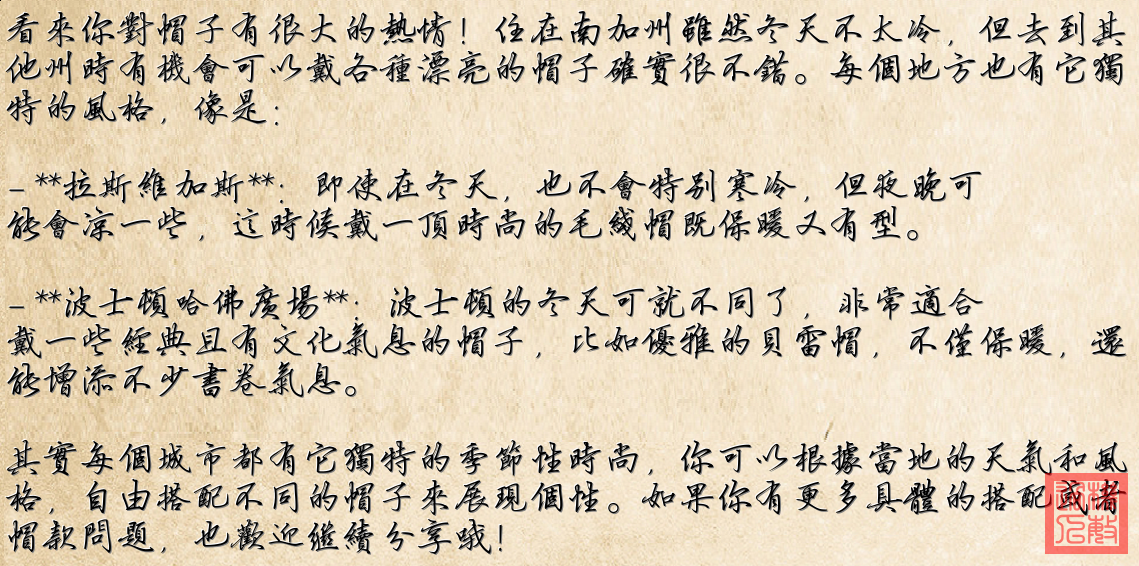 看來你對帽子有很大的熱情！住在南加州雖然冬天不太冷，但去到其
他州時有機會可以戴各種漂亮的帽子確實很不錯。每個地方也有它獨
特的風格，像是：
- **拉斯維加斯**：即使在冬天，也不會特別寒冷，但夜晚可
能會涼一些，這時候戴一頂時尚的毛線帽既保暖又有型。
- **波士頓哈佛廣場**：波士頓的冬天可就不同了，非常適合
戴一些經典且有文化氣息的帽子，比如優雅的貝雷帽，不僅保暖，還
能增添不少書卷氣息。
其實每個城市都有它獨特的季節性時尚，你可以根據當地的天氣和風
格，自由搭配不同的帽子來展現個性。如果你有更多具體的搭配或者
帽款問題，也歡迎繼續分享哦！